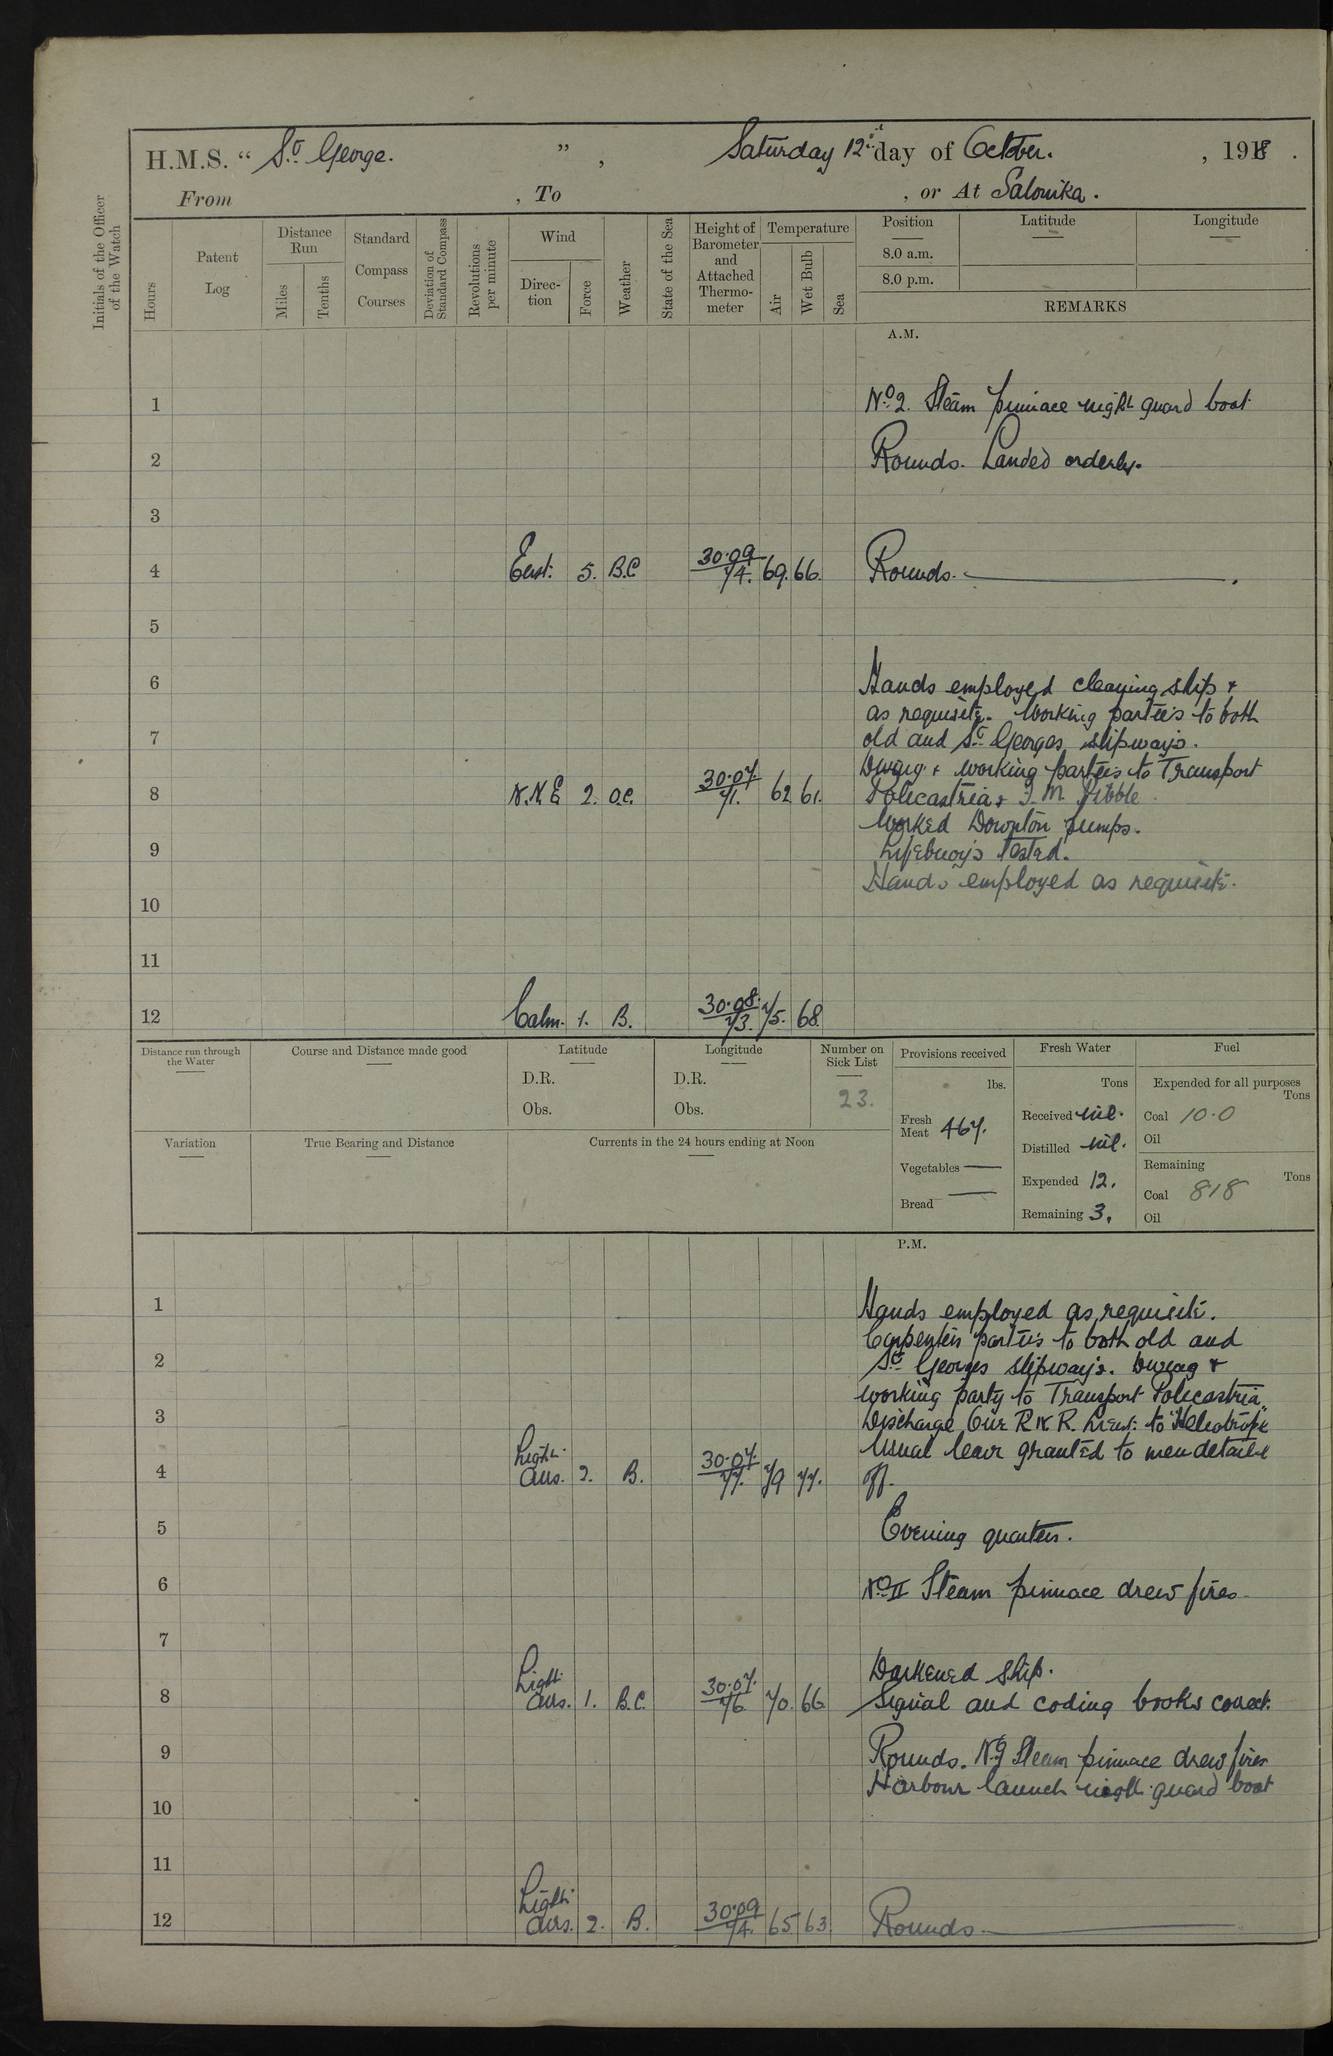 H.M.S. “ St George. ” , Saturday 12th day of October. , 1918 .
From , To , or At Salonika .
Initials of the Officer of the Watch
Hours
Patent Log
Distance Run
Miles
Tenths
Standard Compass Courses
Deviation of Standard Compass
Revolutions per minute
Wind
Direction
Force
Weather
State of the Sea
Height of Barometer and Attached Thermometer
Temperature
Air
Wet Bulb
Sea
Position Latitude Longitude
8.0 a.m.
8.0 p.m.
REMARKS
A.M.
1 No 2. Steam pinnace night guard boat
2 Rounds. Landed orderly.
3
4 East. 5. B.C 30.09/74. 69. 66. Rounds.
5
6 Hands employed cleaning ship &
as requisite. Working parties to both
7 old and St Georges slipways.
Diving & working parties to Transport
8 N.N.E 2. O.C. 30.07/71. 62 61. Policastria &
Worked Downton pumps.
9 Lifebuoys tested.
Hands employed as requisite.
10
11
12 Calm. 1. B. 30.08/73. 75. 68.
Distance run through the Water
Course and Distance made good
Latitude
D.R.
Obs.
Longitude
D.R.
Obs.
Number on Sick List
23.
Provisions received
lbs.
Fresh Meat 467.
Vegetables —
Bread —
Fresh Water
Tons
Received nil.
Distilled nil.
Expended 12.
Remaining 3.
Fuel
Expended for all purposes
Tons
Coal 10.0
Oil
Remaining
Tons
Coal 818
Oil
Variation
True Bearing and Distance
Currents in the 24 hours ending at Noon
P.M.
1 Hands employed as requisite.
Carpenters parties to both old and
2 St Georges slipways. Diving &
working party to Transport Policastria
3 Discharge One R.N.R. Lieut: to "Heliotrope"
Usual leave granted to men detailed
4 Light airs. 2. B. 30.07/77. 79 77. off.
5 Evening quarters.
6 No II Steam pinnace drew fires
7
Darkened ship.
8 Light airs. 1. B.C. 30.07/76 70. 66 Signal and coding books correct.
9 Rounds. Steam pinnace drew fires
Harbour launch night guard boat
10
11
12 Light airs. 2. B. 30.09/74. 65 63 Rounds